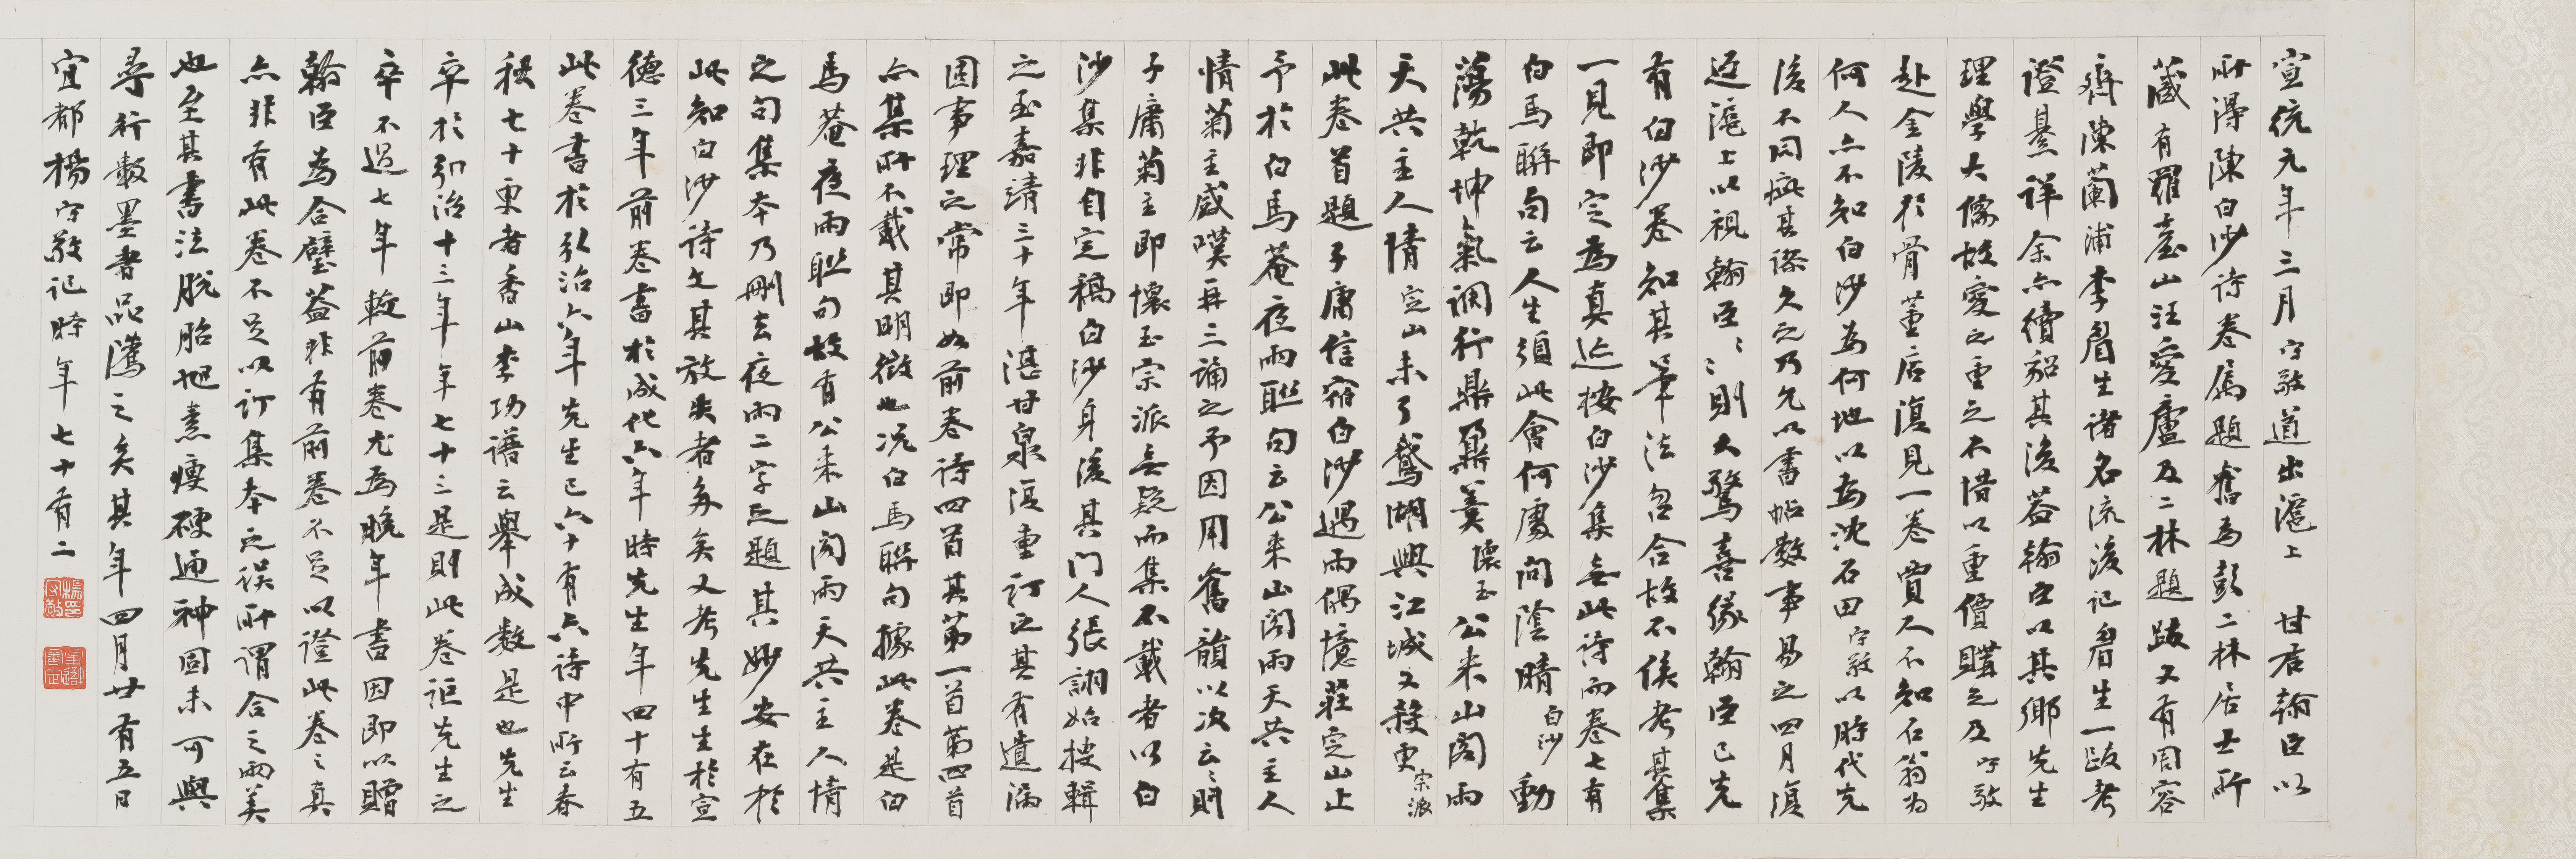 宣統元年三月守敬道出滬上　甘君翰臣以
所得陳白沙詩卷屬題舊為彭二林居士所
藏有羅臺山汪愛廬及二林題跋又有周容
齋陳蘭浦李眉生諸名流後記眉生一跋考
證綦詳余亦續貂其後蓋翰臣以其鄉先生
理學大儒故愛之重之不惜以重價購之及守敬
赴金陵於骨董店復見一卷賈人不知石翁為
何人亦不知白沙為何地以為沈石田守敬以時代先
後不同疵其謬久之乃允以書帖數事易之四月復
返滬上以視翰臣〻則大驚喜緣翰臣已先
有白沙卷知其筆法忽合故不俟考其集
一見即定為真迹按白沙集無此詩而卷七有
白馬聯句云人生須此會何處問陰晴白沙動
蕩乾坤氣調行鼎鼐羹懷玉公來山閣雨
天共主人情定山未了鵝湖興江城又殺更宗派
此卷首題子庸信宿白沙遇雨偶憶莊定山止
予於白馬菴夜雨聯句云公來山閣雨天共主人
情菊主感嘆再三誦之予因用舊韻以次云〻則
子庸菊主即懷玉宗派無疑而集不載者以白
沙集非自定稿白沙身後其門人張詡始搜輯
之至嘉靖三十年湛甘泉復重訂之其有遺漏
固事理之常即如前卷詩四首其第一首第四首
亦集所不載其明徵也况白馬聯句據此卷是白
馬菴夜雨聯句故有公來山閣雨天共主人情
之句集本乃刪去夜雨二字之題其妙安在於
此知白沙詩文其放失者多矣又考先生生於宣
德三年前卷書於成化六年時先生年四十有五
此卷書於弘治六年先生已六十有六詩中所云春
秋七十更者香山李功譜云舉成數是也先生
卒於弘治十三年年七十三是則此卷詎先生之
卒不過七年較前卷尤為晚年書因即以贈
翰臣為合璧蓋非有前卷不足以證此卷之真
亦非有此卷不足以訂集本之誤所謂合之兩美
也至其書法脫胎旭素瘦硬通神固未可與
尋行數墨者品騭之矣其年四月廿有五日
宜都楊守敬記時年七十有二